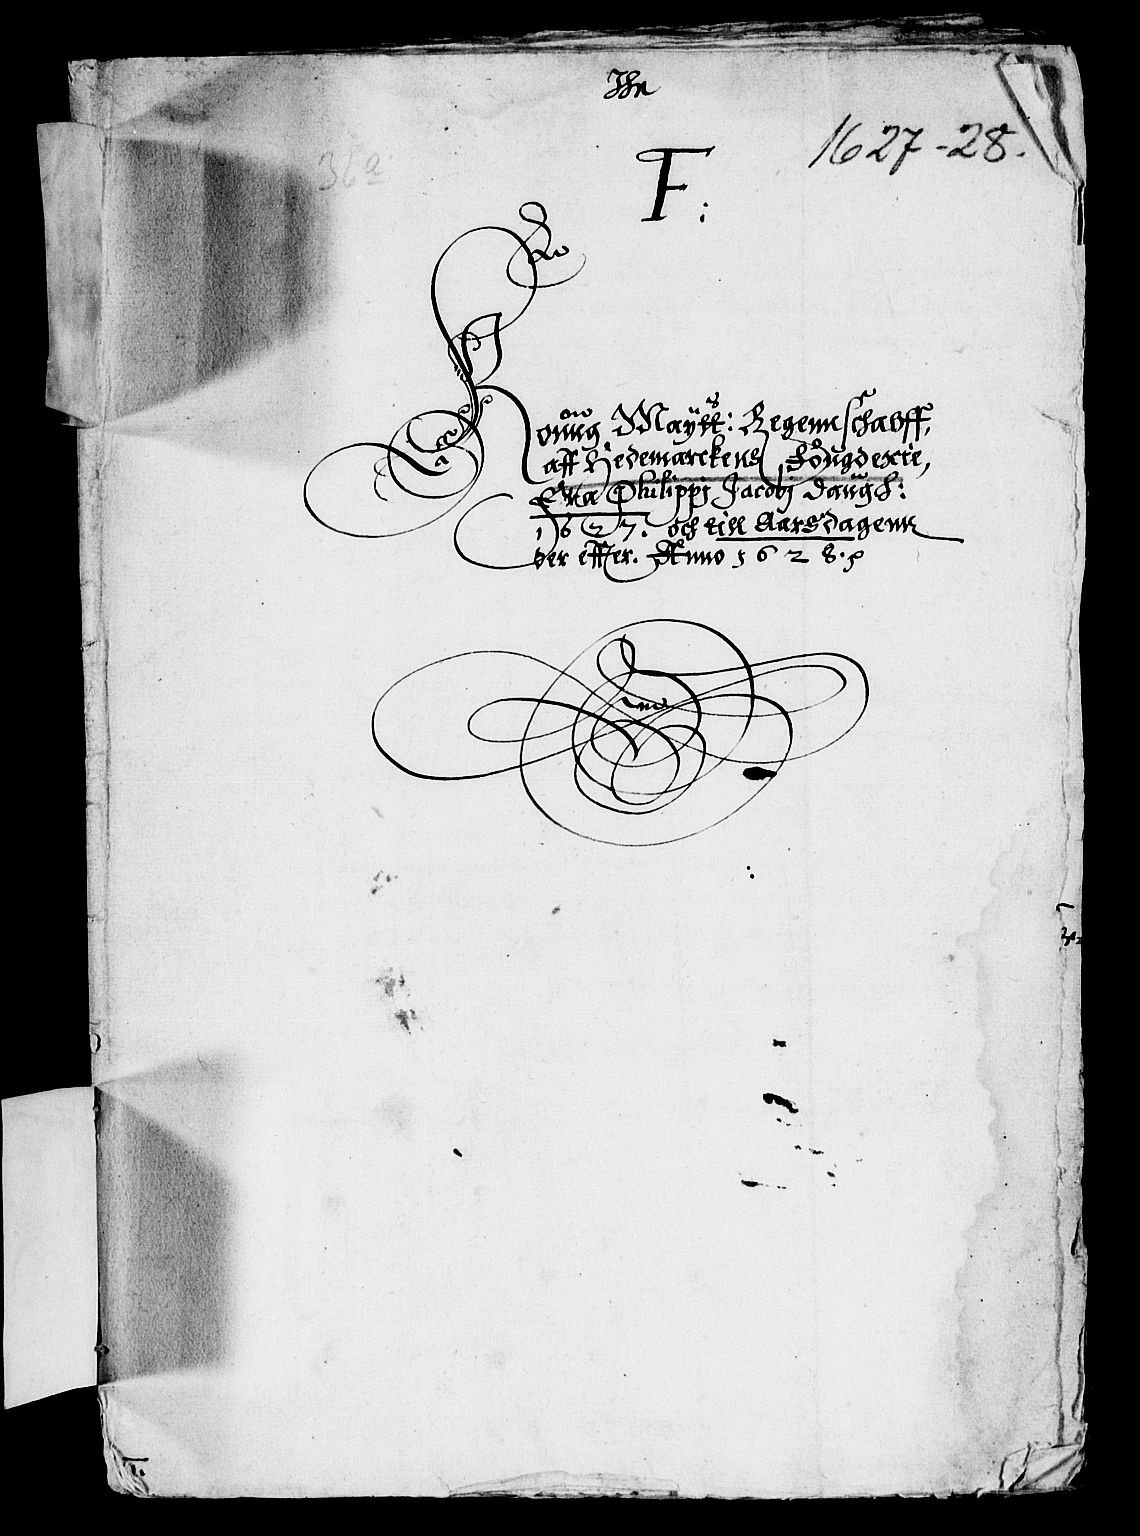 Ihe
1627-28.
36a
F:
Konng Maÿtt: Regennschabff,
aff Hedemarckens Fougderie,
Fra Philippi Jacobi daugh:
1627. och till Aarsdagenn
her effter. Anno 1628.